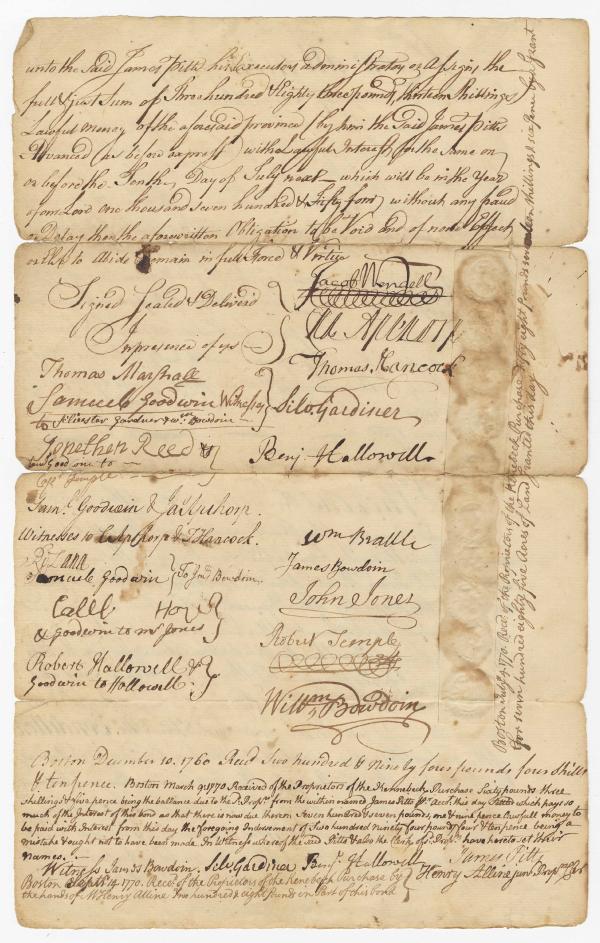 unto the Said James Pitts his Executors administrators or Assigns the
full & just Sum of Three hundred & Eighty three pounds, thirteen Shillings
Lawful Money of the aforesaid province (by him the Said James Pitts
Advanced (as before exprest) with Lawful Interest for the Same on
or before the Tenth Day of July next which will be in the Year
of our Lord One thousand seven hundred & Fifty four without any fraud
or Delay then the aforewritten Obligation to be Void and of none Effect
or else to Abide & remain in full Force & Virtue
Jacob Wendell
Signed Sealed & Deliverd
In presence of us
Cha Apthorp
Thomas Hancock
Thomas Marshall
Samuel Goodwin Witnesses
to Silvester Gardiner & Wm Bowdoin
Silvr Gardiner
Jonethen Reed &
Saml Goodwin to
Capt Temple
Benj Hallowell
Saml Goodwin &
Witnesses to C Apthorp & T Hancock.
Wm Brattle
Samuel Goodwin } To Jas Bowdoin
James Bowdoin
Caleb
& Goodwin to Mr Jones
John Jones
Robert Temple
Robert Hallowell &
Goodwin to Hallowell
Willm Bowdoin
Boston December 10. 1760 Recd Two hundred & Ninety four pounds four Shills
& ten pence. Boston March 9. 1770 Received of the Proprietors of the Kennebeck Purchase Sixty pounds three
shillings & five pence being the ballance due to the sd Propts from the within named James Pitts Recd this day which pays so
much of the Interest of this bond as that there is now due thereon Seven hundred & seven pounds, one & nine pence Lawfull money to
be paid with Interest from this day the foregoing Indorsement of Two hundred ninety four pounds four & ten pence being a
mistake & ought not to have been made. In Witness whereof the said Pitts & also the Clerk of sd Propts have hereto set their
names.
James Pitts
Witness James Bowdoin, Silv Gardiner Benj Hallowell
Henry Alline junr Props Clerk
Boston Septr 4. 1770. Recd of the Proprietors of the Kenebeck Purchase by
the hands of Mr Henry Alline One hundred & eight pounds in Part of this bond
Boston July 4. 1770. Recd of the Proprietors of the Kenebeck Purchase Fifty eight pounds seventeen shillings & six pence by a Grant
for seven hundred eighty five Acres of Land granted this day